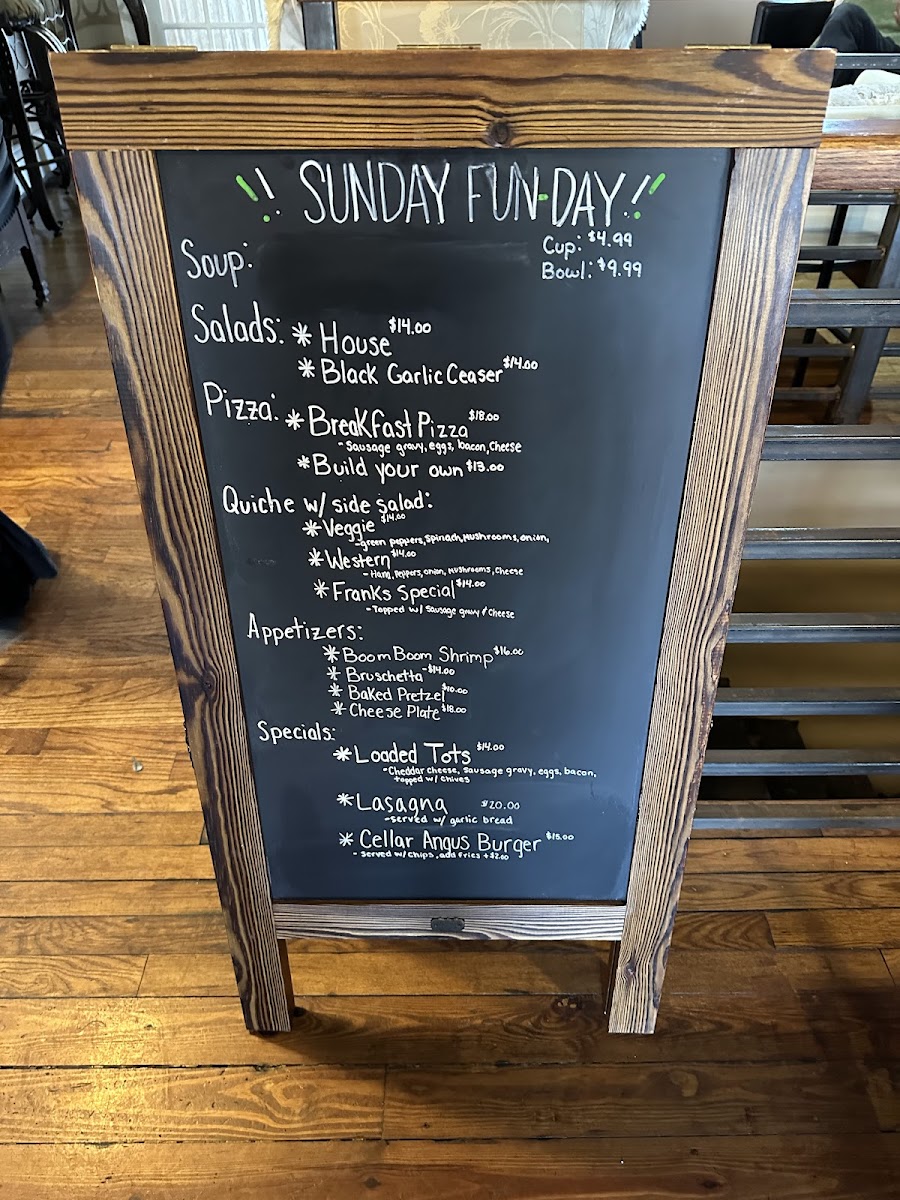 !! SUNDAY FUN-DAY!!
Soup: Cup: $4.99
Bowl: $9.99
Salads: * House $14.00
* Black Garlic Ceaser $14.00
Pizza: * Breakfast Pizza $18.00
- Sausage gravy, eggs, bacon, Cheese
* Build your own $13.00
Quiche w/ side salad:
* Veggie $14.00
- green peppers, spinach, Mushrooms, onion,
* Western $14.00
- Ham, Peppers, onion, Mushrooms, Cheese
* Franks Special $14.00
- Topped w/ Sausage gravy & Cheese
Appetizers:
* Boom Boom Shrimp $16.00
* Bruschetta - $14.00
* Baked Pretzel $10.00
* Cheese Plate $18.00
Specials:
* Loaded Tots $14.00
- Cheddar cheese, sausage gravy, eggs, bacon,
topped w/ chives
* Lasagna $20.00
- served w/ garlic bread
* Cellar Angus Burger $15.00
- Served w/ chips, add fries + $2.00